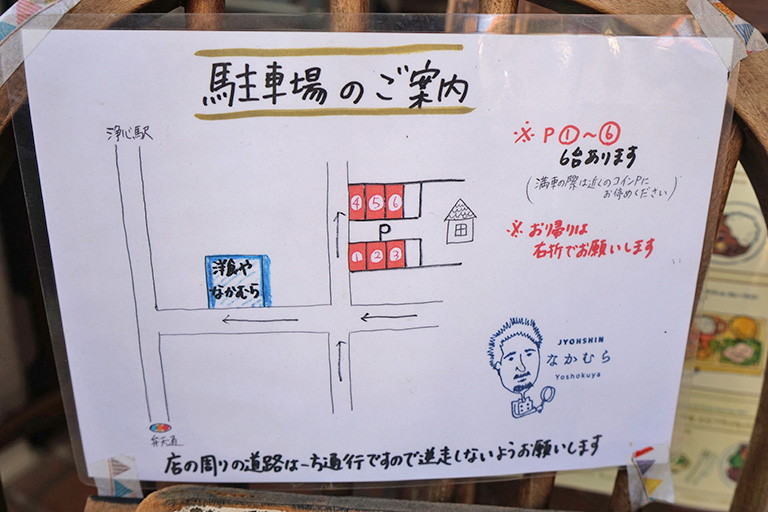 駐車場のご案内
浄心駅
※P①〜⑥
6台あります
(満車の際は近くのコインPに
お停めください)
※お帰りは
右折でお願いします
④⑤⑥
P
①②③
洋食や
なかむら
JYOHSHIN
なかむら
Yoshokuya
弁天通
店の周りの道路は一方通行ですので逆走しないようお願いします